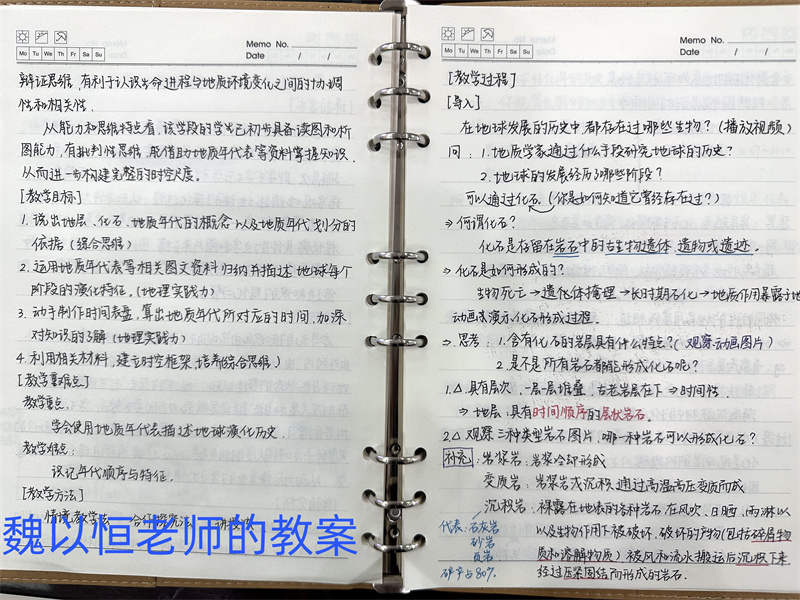 Memo No.
Mo Tu We Th Fr Sa Su
Date / /
辩证思维,有利于认识生命进程与地质环境变化之间的协调
性和相关性.
从能力和思维特点看,该学段的学生已初步具备读图和析
图能力,有批判性思维,能借助地质年代表等资料掌握知识,
从而进一步构建完整的时空尺度.
[教学目标]
1. 说出地层、化石、地质年代的概念以及地质年代划分的
依据(综合思维)
2. 运用地质年代表等相关图文资料归纳并描述地球每个
阶段的演化特征.(地理实践力)
3. 动手制作时间表量,算出地质年代所对应的时间,加深
对知识的了解(地理实践力)
4. 利用相关材料,建立时空框架,培养综合思维)
[教学重难点]
教学重点.
学会使用地质年代表描述地球演化历史.
教学难点:
识记年代顺序与特征.
[教学方法]
情境教学法
魏以恒老师的教案
Memo No.
Mo Tu We Th Fr Sa Su
Date / /
[教学过程]
[导入]
在地球发展的历史中,都存在过哪些生物?(播放视频)
问:1.地质学家通过什么手段研究地球的历史?
2.地球的发展经历了哪些阶段?
可以通过化石.(你是如何知道它曾经存在过?)
⇒何谓化石?
化石是存留在岩石中的古生物遗体、遗物或遗迹.
⇒化石是如何形成的?
生物死亡→遗体掩埋→长时期石化→地质作用暴露于地
动画演示化石形成过程.
⇒思考:1.含有化石的岩层具有什么特点?(观察动画图片)
2.是不是所有岩石都能形成化石呢?
1.△具有层次,一层一层堆叠,古老岩层在下⇒时间性
⇒地层:具有时间顺序的层状岩石.
2.△观察三种类型岩石图片,哪一种岩石可以形成化石?
补充:岩浆岩:岩浆冷却形成
变质岩:岩浆岩或沉积通过高温高压变质而成
沉积岩:裸露在地表的各种岩石在风吹、日晒、雨淋以
以及生物作用下被破坏,破坏的产物(包括碎屑物
质和溶解物质)被风和流水搬运后沉积下来
经过压紧固结而形成的岩石.
代表:石灰岩
砂岩
页岩
矿产占80%.